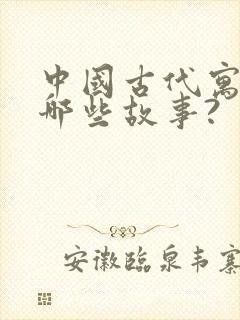 中國古代寓
哪些故事?
安徽臨泉韦寨